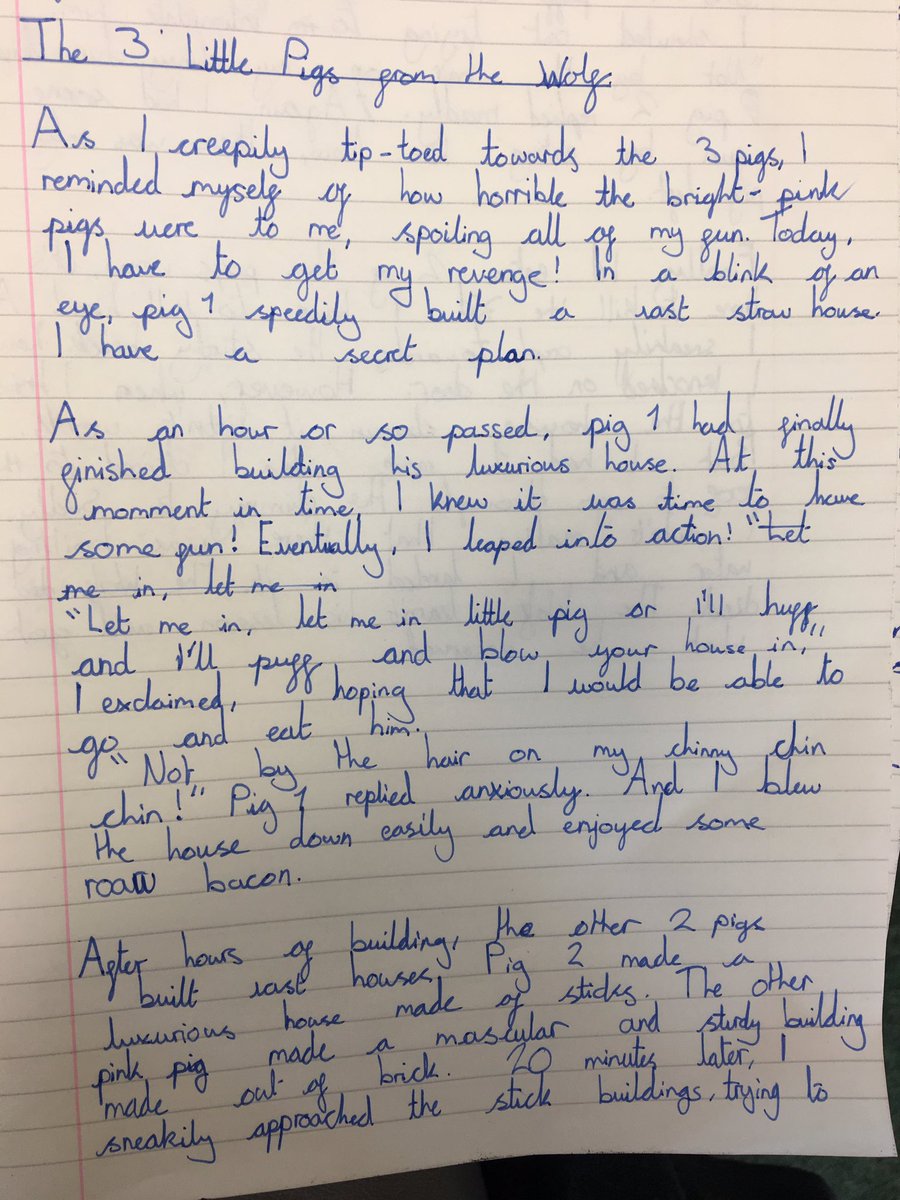 The 3 Little Pigs from the Wolf
As I creepily tip-toed towards the 3 pigs, I
reminded myself of how horrible the bright-pink
pigs were to me, spoiling all of my fun. Today,
I have to get my revenge! In a blink of an
eye, pig 1 speedily built a vast straw house.
I have a secret plan.
As an hour or so passed, pig 1 had finally
finished building his luxurious house. At this
momment in time, I knew it was time to have
some fun! Eventually, I leaped into action! "Let
me in, let me in
"Let me in, let me in little pig or I'll huff
and I'll puff and blow your house in,"
I exclaimed, hoping that I would be able to
go and eat him.
"Not by the hair on my chinny chin
chin!" Pig 1 replied anxiously. And I blew
the house down easily and enjoyed some
roaw bacon.
After hours of building, the other 2 pigs
built vast houses. Pig 2 made a
luxurious house made of sticks. The other
pink pig made a mascular and sturdy building
made out of brick. 20 minutes later, I
sneakily approached the stick buildings, trying to